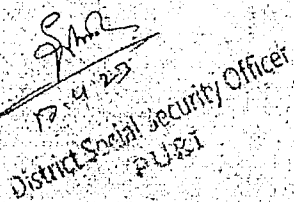 .4.23
District Social Security Officer
PURI